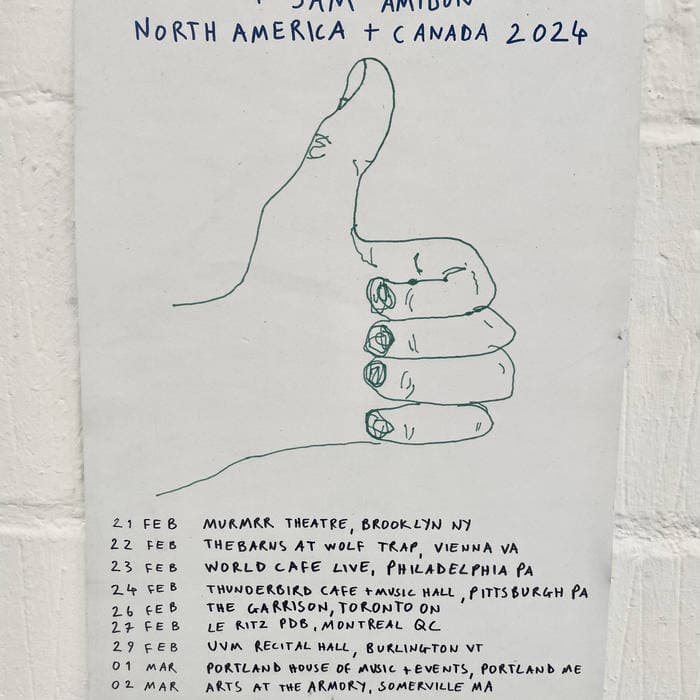 + SAM AMIDON
NORTH AMERICA + CANADA 2024
21 FEB MURMRR THEATRE, BROOKLYN NY
22 FEB THE BARNS AT WOLF TRAP, VIENNA VA
23 FEB WORLD CAFE LIVE, PHILADELPHIA PA
24 FEB THUNDERBIRD CAFE + MUSIC HALL, PITTSBURGH PA
26 FEB THE GARRISON, TORONTO ON
27 FEB LE RITZ PDB, MONTREAL QC
29 FEB UVM RECITAL HALL, BURLINGTON VT
01 MAR PORTLAND HOUSE OF MUSIC + EVENTS, PORTLAND ME
02 MAR ARTS AT THE ARMORY, SOMERVILLE MA